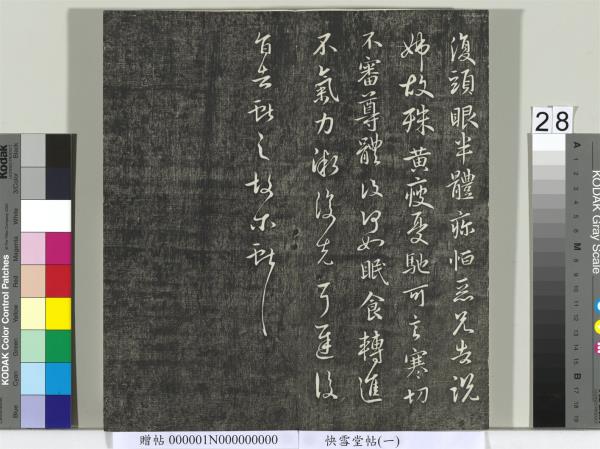 復頭眼半體疼恒惡兄告說
姊故殊黃瘦憂馳可言寒切
不審尊體復何如眠食轉進
不氣力漸復先耳遲復
告獻之故
28
贈帖 000001N000000000 快雪堂帖(一)
Kodak
KODAK Color Control Patches
Blue Cyan Green Yellow Red Magenta White 3/Color Black
KODAK Gray Scale
A 1 2 3 4 5 6 M 8 9 10 11 12 13 14 15 B 17 18 19